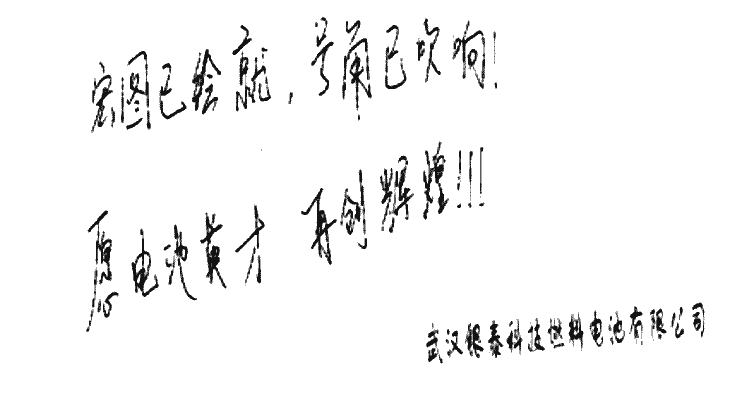 宏图已绘就，号角已吹响！
愿电池英才 再创辉煌！！！
武汉银泰科技燃料电池有限公司